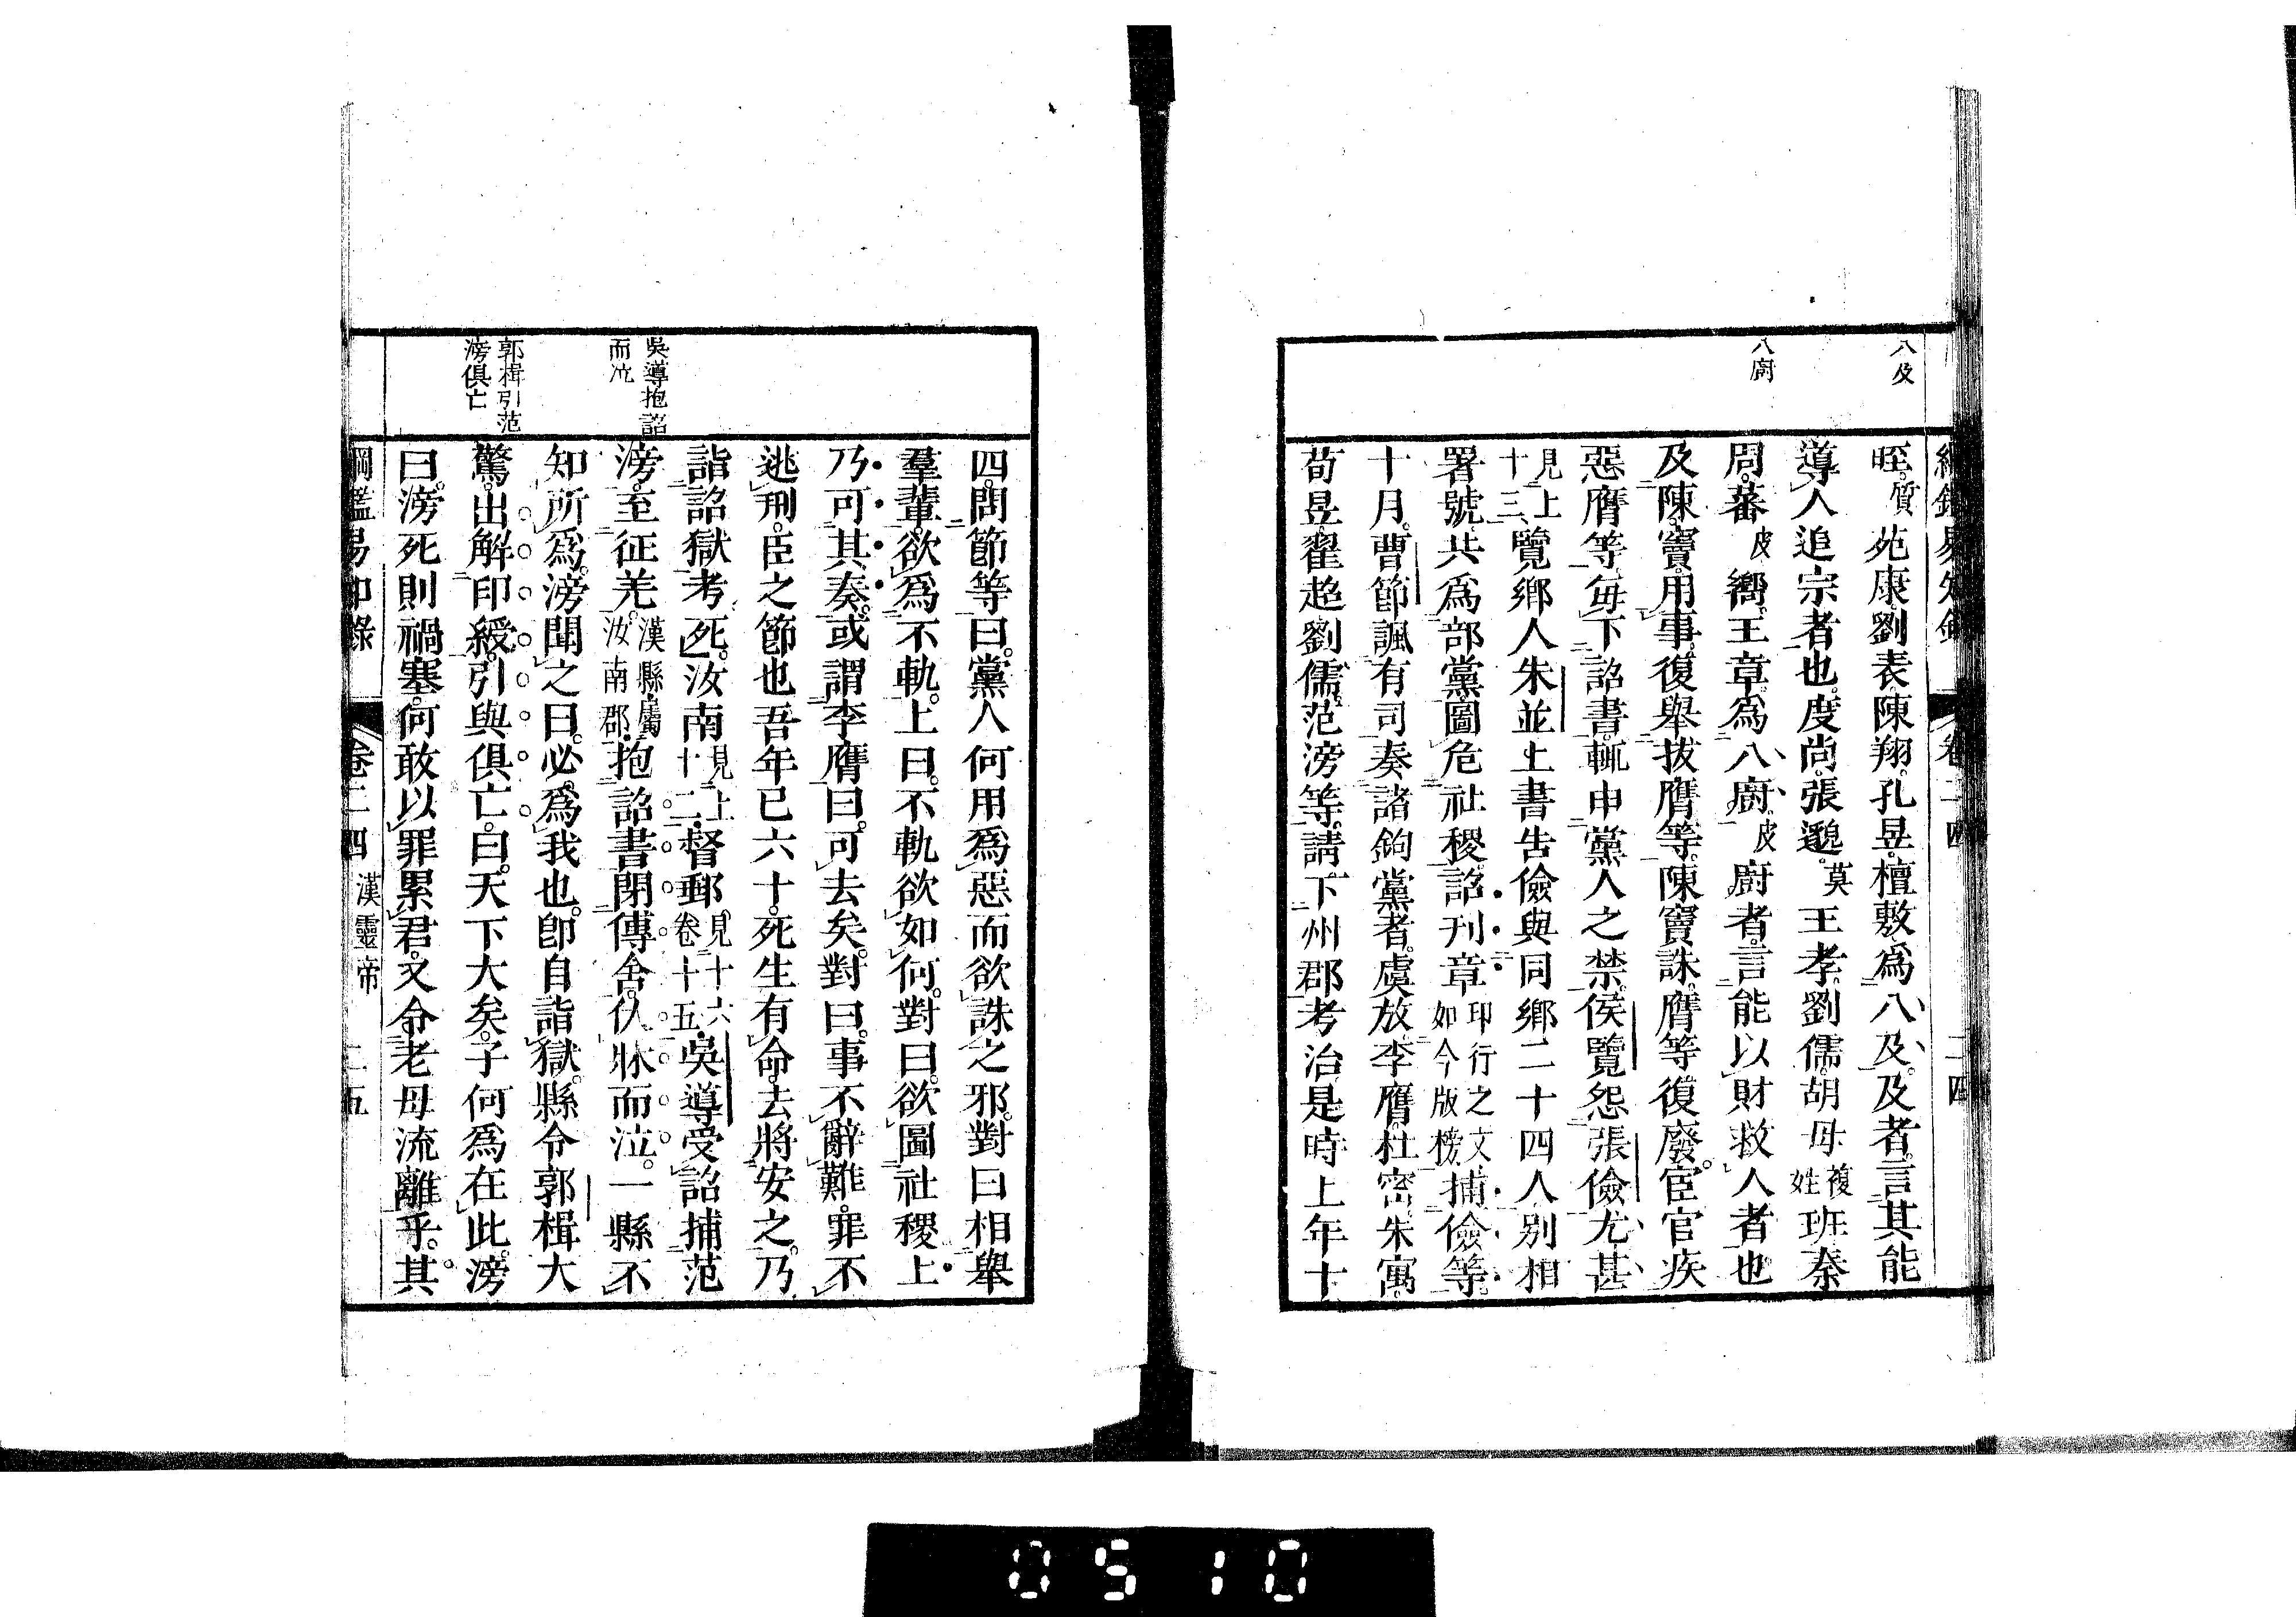 八及
八廚
綱鑑易知錄 卷二四 二四
晊。質苑康。劉表。陳翔。孔昱。檀敷。爲八及。及者。言其能
導人追宗者也。度尚。張邈。莫王孝。劉儒。胡母複姓班。秦
周。蕃皮嚮。王章。爲八廚。皮廚者。言能以財救人者也
及陳竇用事。復舉拔膺等。陳竇誅。膺等復廢。宦官疾
惡膺等。每下詔書。輒申黨人之禁。侯覽怨張儉尤甚
見上十三、覽鄉人朱並上書告儉與同鄉二十四人別相
署號。共爲部黨。圖危社稷。詔刊章印行之文、如今版榜、捕儉等。
十月。曹節諷有司奏諸鉤黨者。虞放。李膺。杜密。朱寓。
荀昱。翟超。劉儒。范滂等。請下州郡考治。是時上年十
吳導抱詔
而泣
郭楫引范
滂俱亡
四。問節等曰。黨人何用爲惡而欲誅之邪。對曰相舉
羣輩。欲爲不軌。上曰。不軌欲如何。對曰。欲圖社稷上
乃可其奏。或謂李膺曰。可去矣。對曰。事不辭難。罪不
逃刑。臣之節也吾年已六十。死生有命。去將安之。乃
詣詔獄考死。汝南見上十二、督郵。見十六卷十五、吳導受詔捕范
滂。至征羌。漢縣屬汝南郡、抱詔書閉傳舍。伏牀而泣。一縣不
知所爲。滂聞之曰。必爲我也。卽自詣獄。縣令郭楫大
驚。出解印綬。引與俱亡。曰。天下大矣。子何爲在此。滂
曰。滂死則禍塞。何敢以罪累君。又令老母流離乎。其
綱鑑易知錄 卷二四 漢靈帝 二五
0510